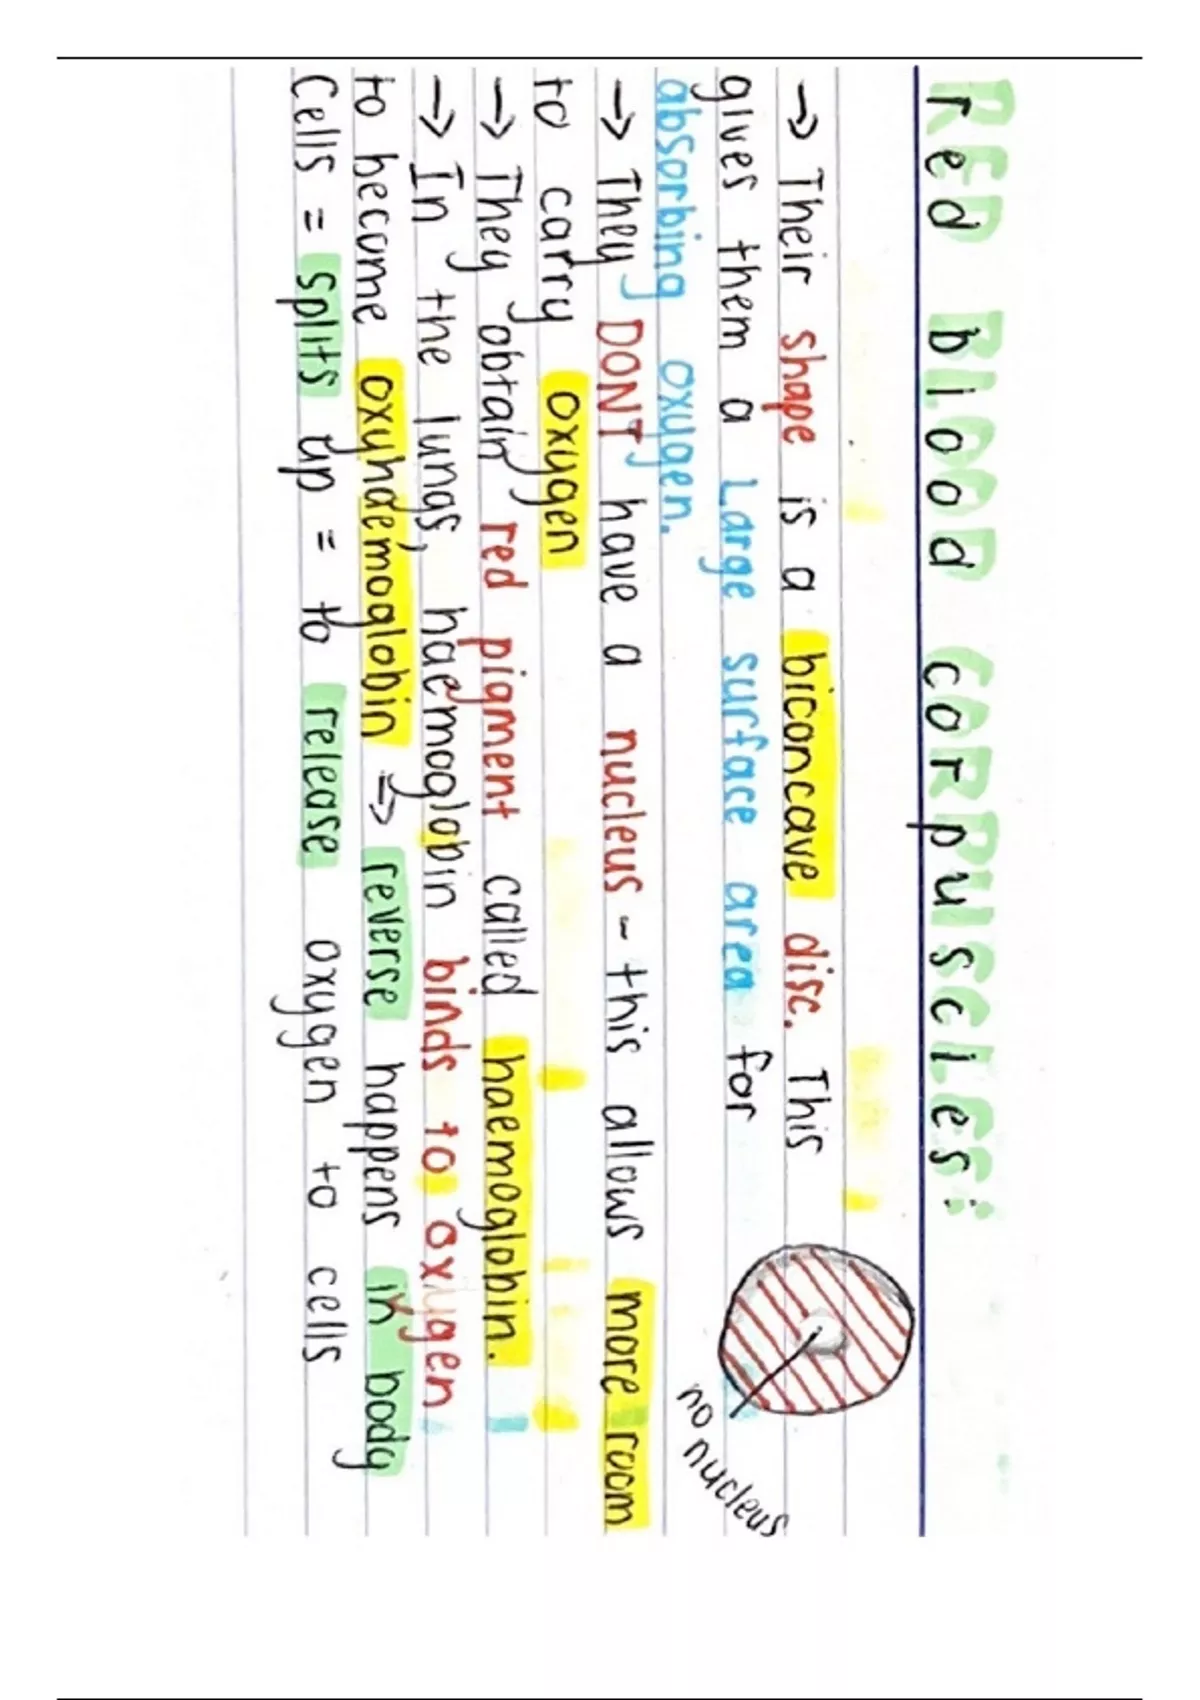 red blood corpuscles:
→ Their shape is a biconcave disc. This
gives them a Large surface area for
absorbing oxygen.
no nucleus
→ They DONT have a nucleus - this allows more room
to carry oxygen
→ They obtain red pigment called haemoglobin.
→ In the lungs, haemoglobin binds to oxygen
to become oxyhaemoglobin ⇒ reverse happens in body
Cells = splits up = to release oxygen to cells